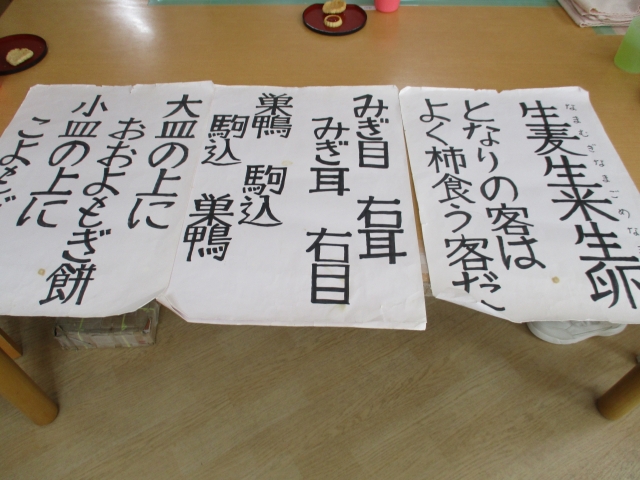 なまむぎなまごめな
生麦生米生卵
となりの客は
よく柿食う客だ
みぎ目 右耳
みぎ耳 右目
巣鴨 駒込
駒込 巣鴨
大皿の上に
おおよもぎ餅
小皿の上に
こよもぎ